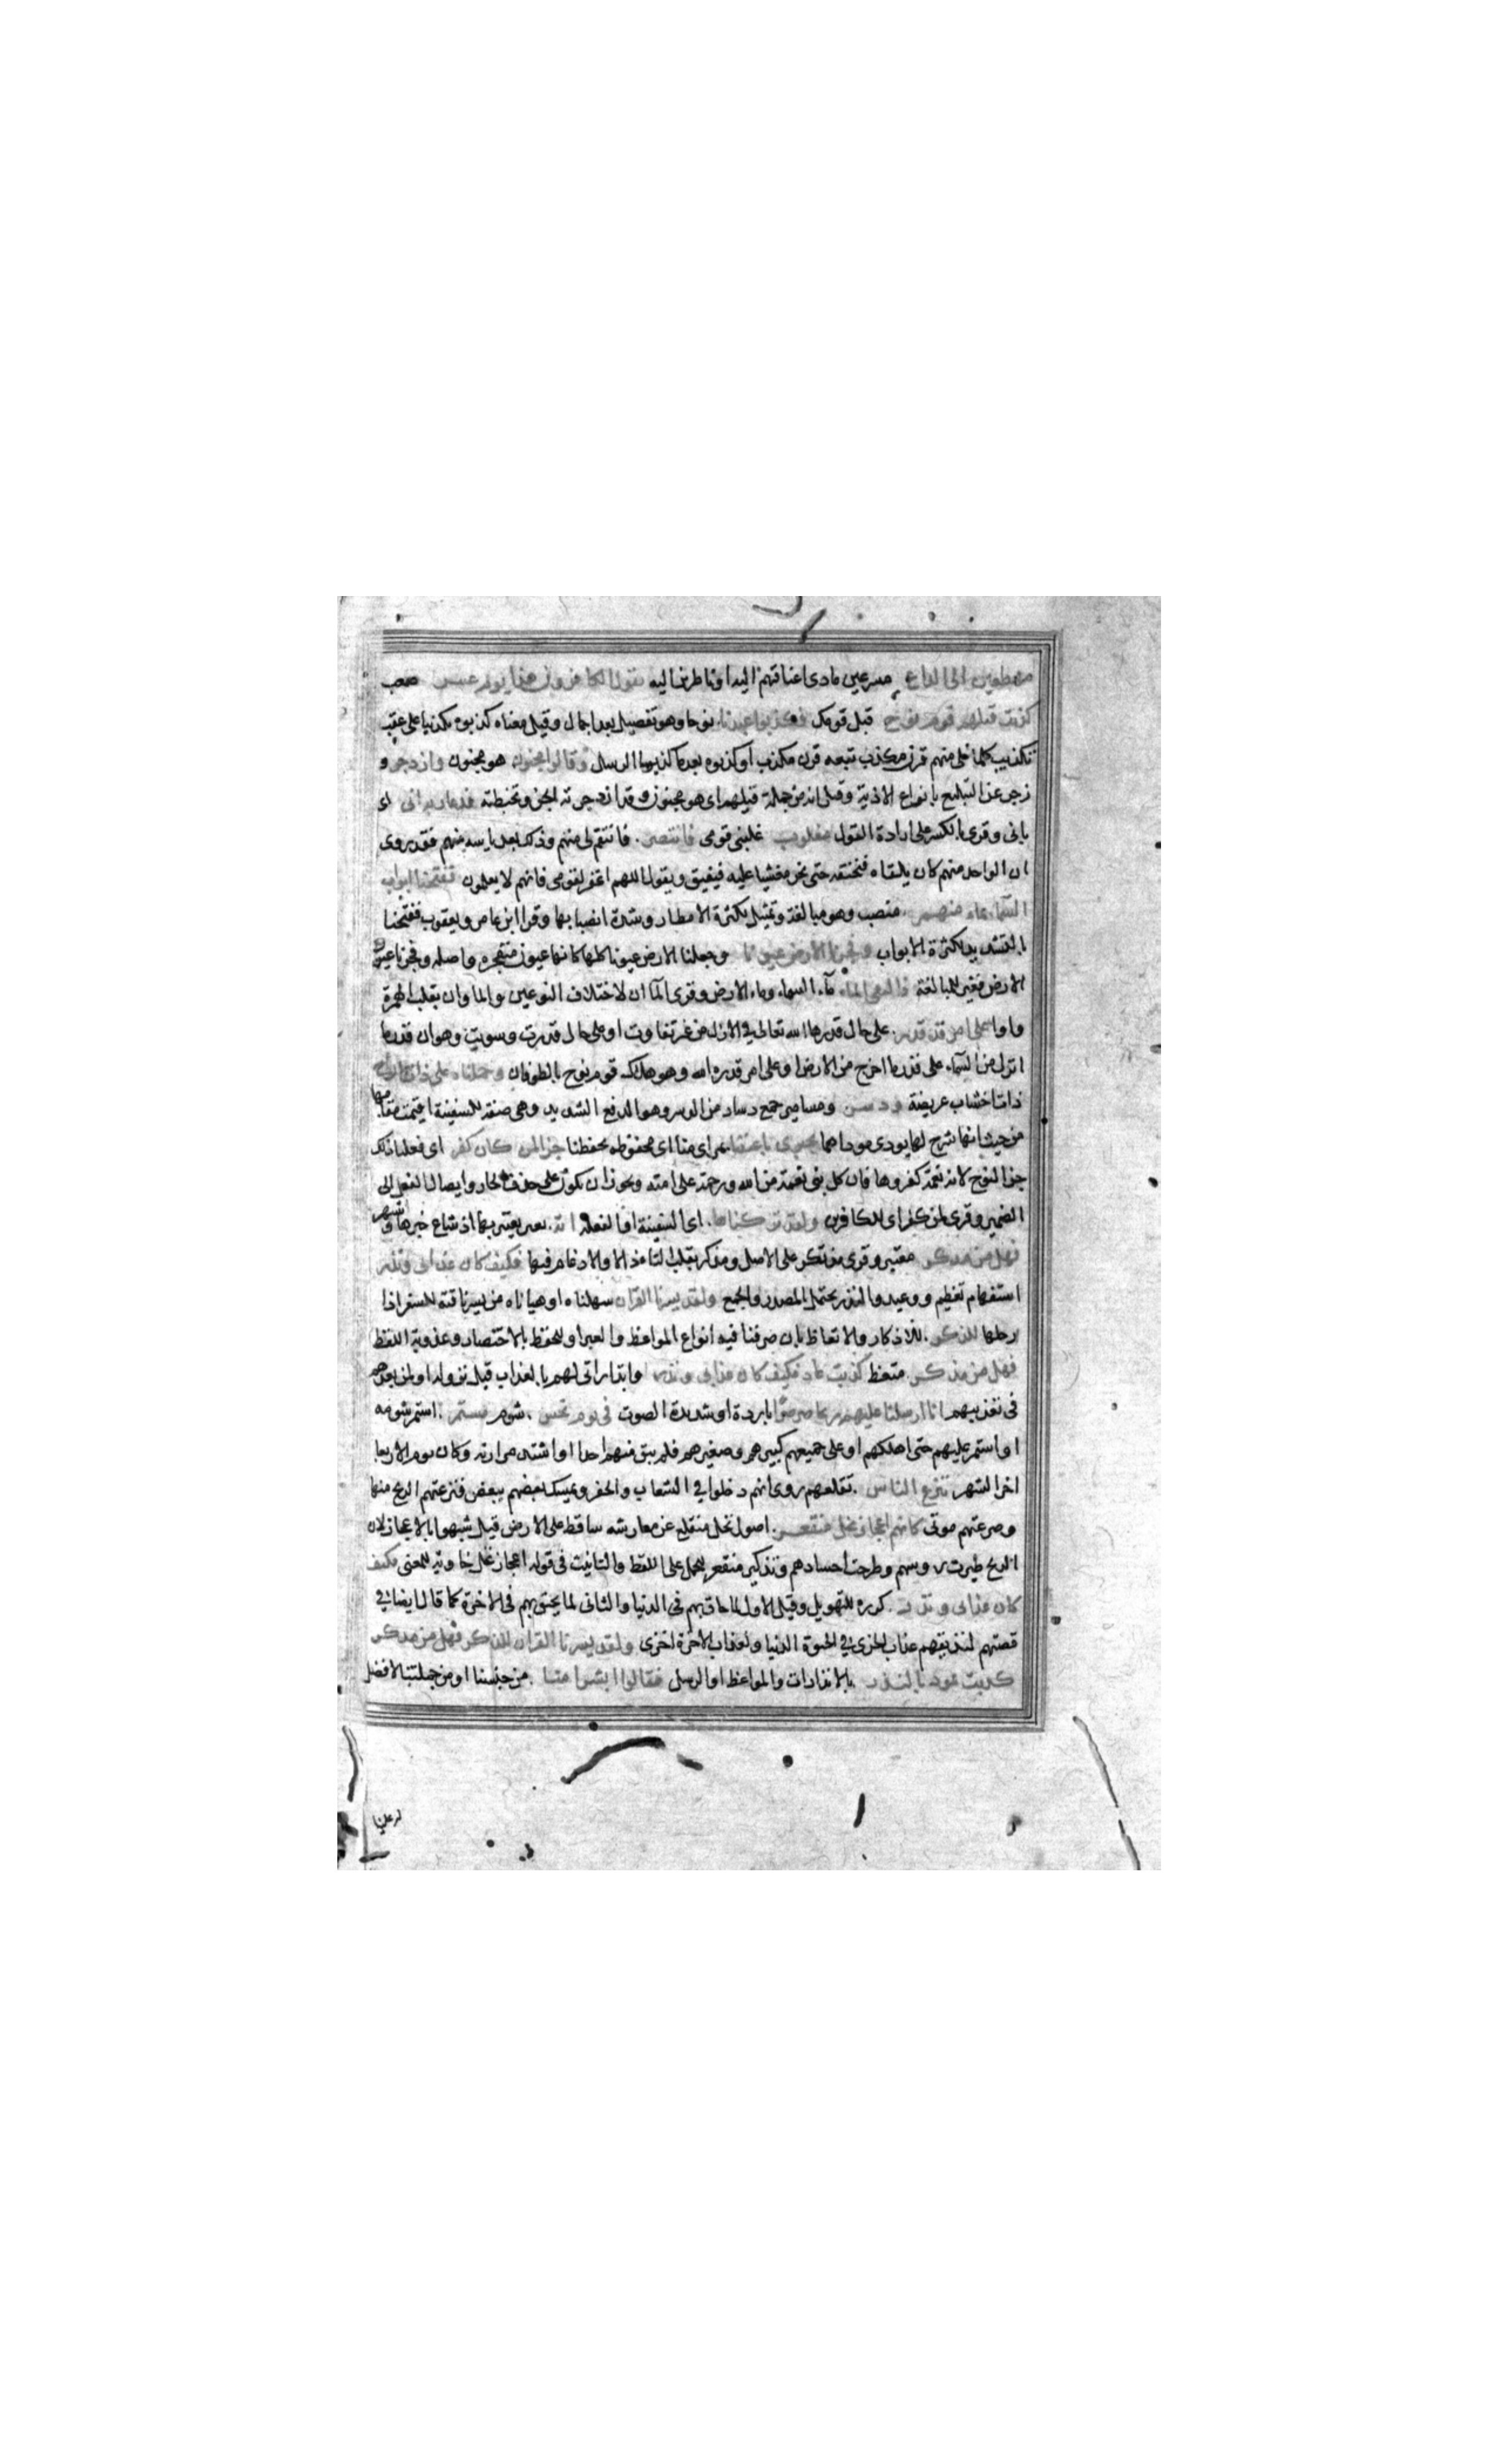 مهطعين الى الداع مسرعين مادى اعناقهم اليه او ناظرين اليه يقول الكافرون هذا يوم عسر صعب
كذبت قبلهم قوم نوح قبل قومك فكذبوا عبدنا نوحا وهو تفصيل بعد اجمال وقيل معناه كذبوه تكذيبا على عقب
تكذيب كلما خلى منهم قرن مكذب تبعه قرن مكذب او كذبوه بعد ما كذبوا الرسل وقالوا مجنون هو مجنون وازدجر و
زجر عن التبليغ بانواع الاذية وقيل انه من جملة قيلهم اى هو مجنون وقد ازدجرته الجن وتخبطته فدعا ربه انى اى
بانى وقرى بالكسر على ارادة القول مغلوب غلبنى قومى فانتصر فانتقم لى منهم وذلك بعد ياسه منهم فقد روى
ان الواحد منهم كان يلقاه فيخنقه حتى يخر مغشيا عليه فيفيق ويقول اللهم اغفر لقومى فانهم لا يعلمون ففتحنا ابواب
السماء بماء منهمر منصب وهو مبالغة وتمثيل لكثرة الامطار وشدة انصبابها وقرا ابن عامر ويعقوب ففتحنا
بالتشديد لكثرة الابواب وفجرنا الارض عيونا وجعلنا الارض عيونا كلها كانها عيون متفجره واصله وفجرنا عيون
الارض فغير للمبالغة فالتقى الماء ماء السماء وماء الارض وقرى الماآن لاختلاف النوعين والماوان بقلب الهمزة
واوا على امر قد قدر على حال قدرها الله تعالى في الازل من غير تفاوت او على حال قدرت وسويت وهو ان قدر ما
انزل من السماء على قدر ما اخرج من الارض او على امر قدره الله وهو هلاك قوم نوح بالطوفان وحملناه على ذات الواح
ذات اخشاب عريضة ودسر ومسامير جمع دسار من الدسر وهو الدفع الشديد وهى صفة للسفينة اقيمت مقامها
من حيث انها شرح لها يودى موداها تجرى باعيننا بمراى منا اى محفوظه بحفظنا جزا لمن كان كفر اى فعلنا ذلك
جزا لنوح لانه نعمة كفروها فان كل نبى نعمة من الله ورحمة على امته ويجوز ان يكون على حذف الجار وايصال الفعل الى
الضمير وقرى لمن كفر اى للكافرين ولقد تركناها اى السفينة او الفعله اية يعتبر بها اذ شاع خبرها واشتهر
فهل من مدكر معتبر وقرى مذتكر على الاصل ومذكر بقلب التا ذالا والادغام فيها فكيف كان عذابى ونذر
استفهام تعظيم ووعيد والنذر يحتمل المصدر والجمع ولقد يسرنا القران سهلناه او هياناه من يسر ناقته للسفر اذا
رحلها للذكر للاذكار والاتعاظ بان صرفنا فيه انواع المواعظ والعبر او للحفظ بالاختصار وعذوبة اللفظ
فهل من مدكر متعظ كذبت عاد فكيف كان عذابى ونذر وانذاراتى لهم بالعذاب قبل نزوله او لمن بعدهم
فى تعذيبهم انا ارسلنا عليهم ريحا صرصرا باردة او شديدة الصوت فى يوم نحس شوم مستمر استمر شومه
او استمر عليهم حتى اهلكهم او على جميعهم كبيرهم وصغيرهم فلم يبق منهم احدا او اشتد مرارته وكان يوم الاربعا
اخر الشهر تنزع الناس تقلعهم روى انهم دخلوا في الشعاب والحفر وتمسك بعضهم ببعض فنزعتهم الريح منها
وصرعتهم موتى كانهم اعجاز نخل منقعر اصول نخل منقلع عن مغارسه ساقط على الارض قيل شبهوا بالاعجاز لان
الريح طيرت روسهم وطرحت اجسادهم وتذكير منقعر للحمل على اللفظ والتانيث فى قوله اعجاز نخل خاويه للمعنى فكيف
كان عذابى ونذر كرره للتهويل وقيل الاول لما حاق بهم فى الدنيا والثانى لما يحيق بهم فى الاخرة كما قال ايضا في
قصتهم لنذيقهم عذاب الخزى في الحيوة الدنيا ولعذاب الاخرة اخزى ولقد يسرنا القران للذكر فهل من مدكر
كذبت ثمود بالنذر بالانذارات والمواعظ او الرسل فقالوا ابشرا منا من جنسنا او من جملتنا لا فضل
له علينا